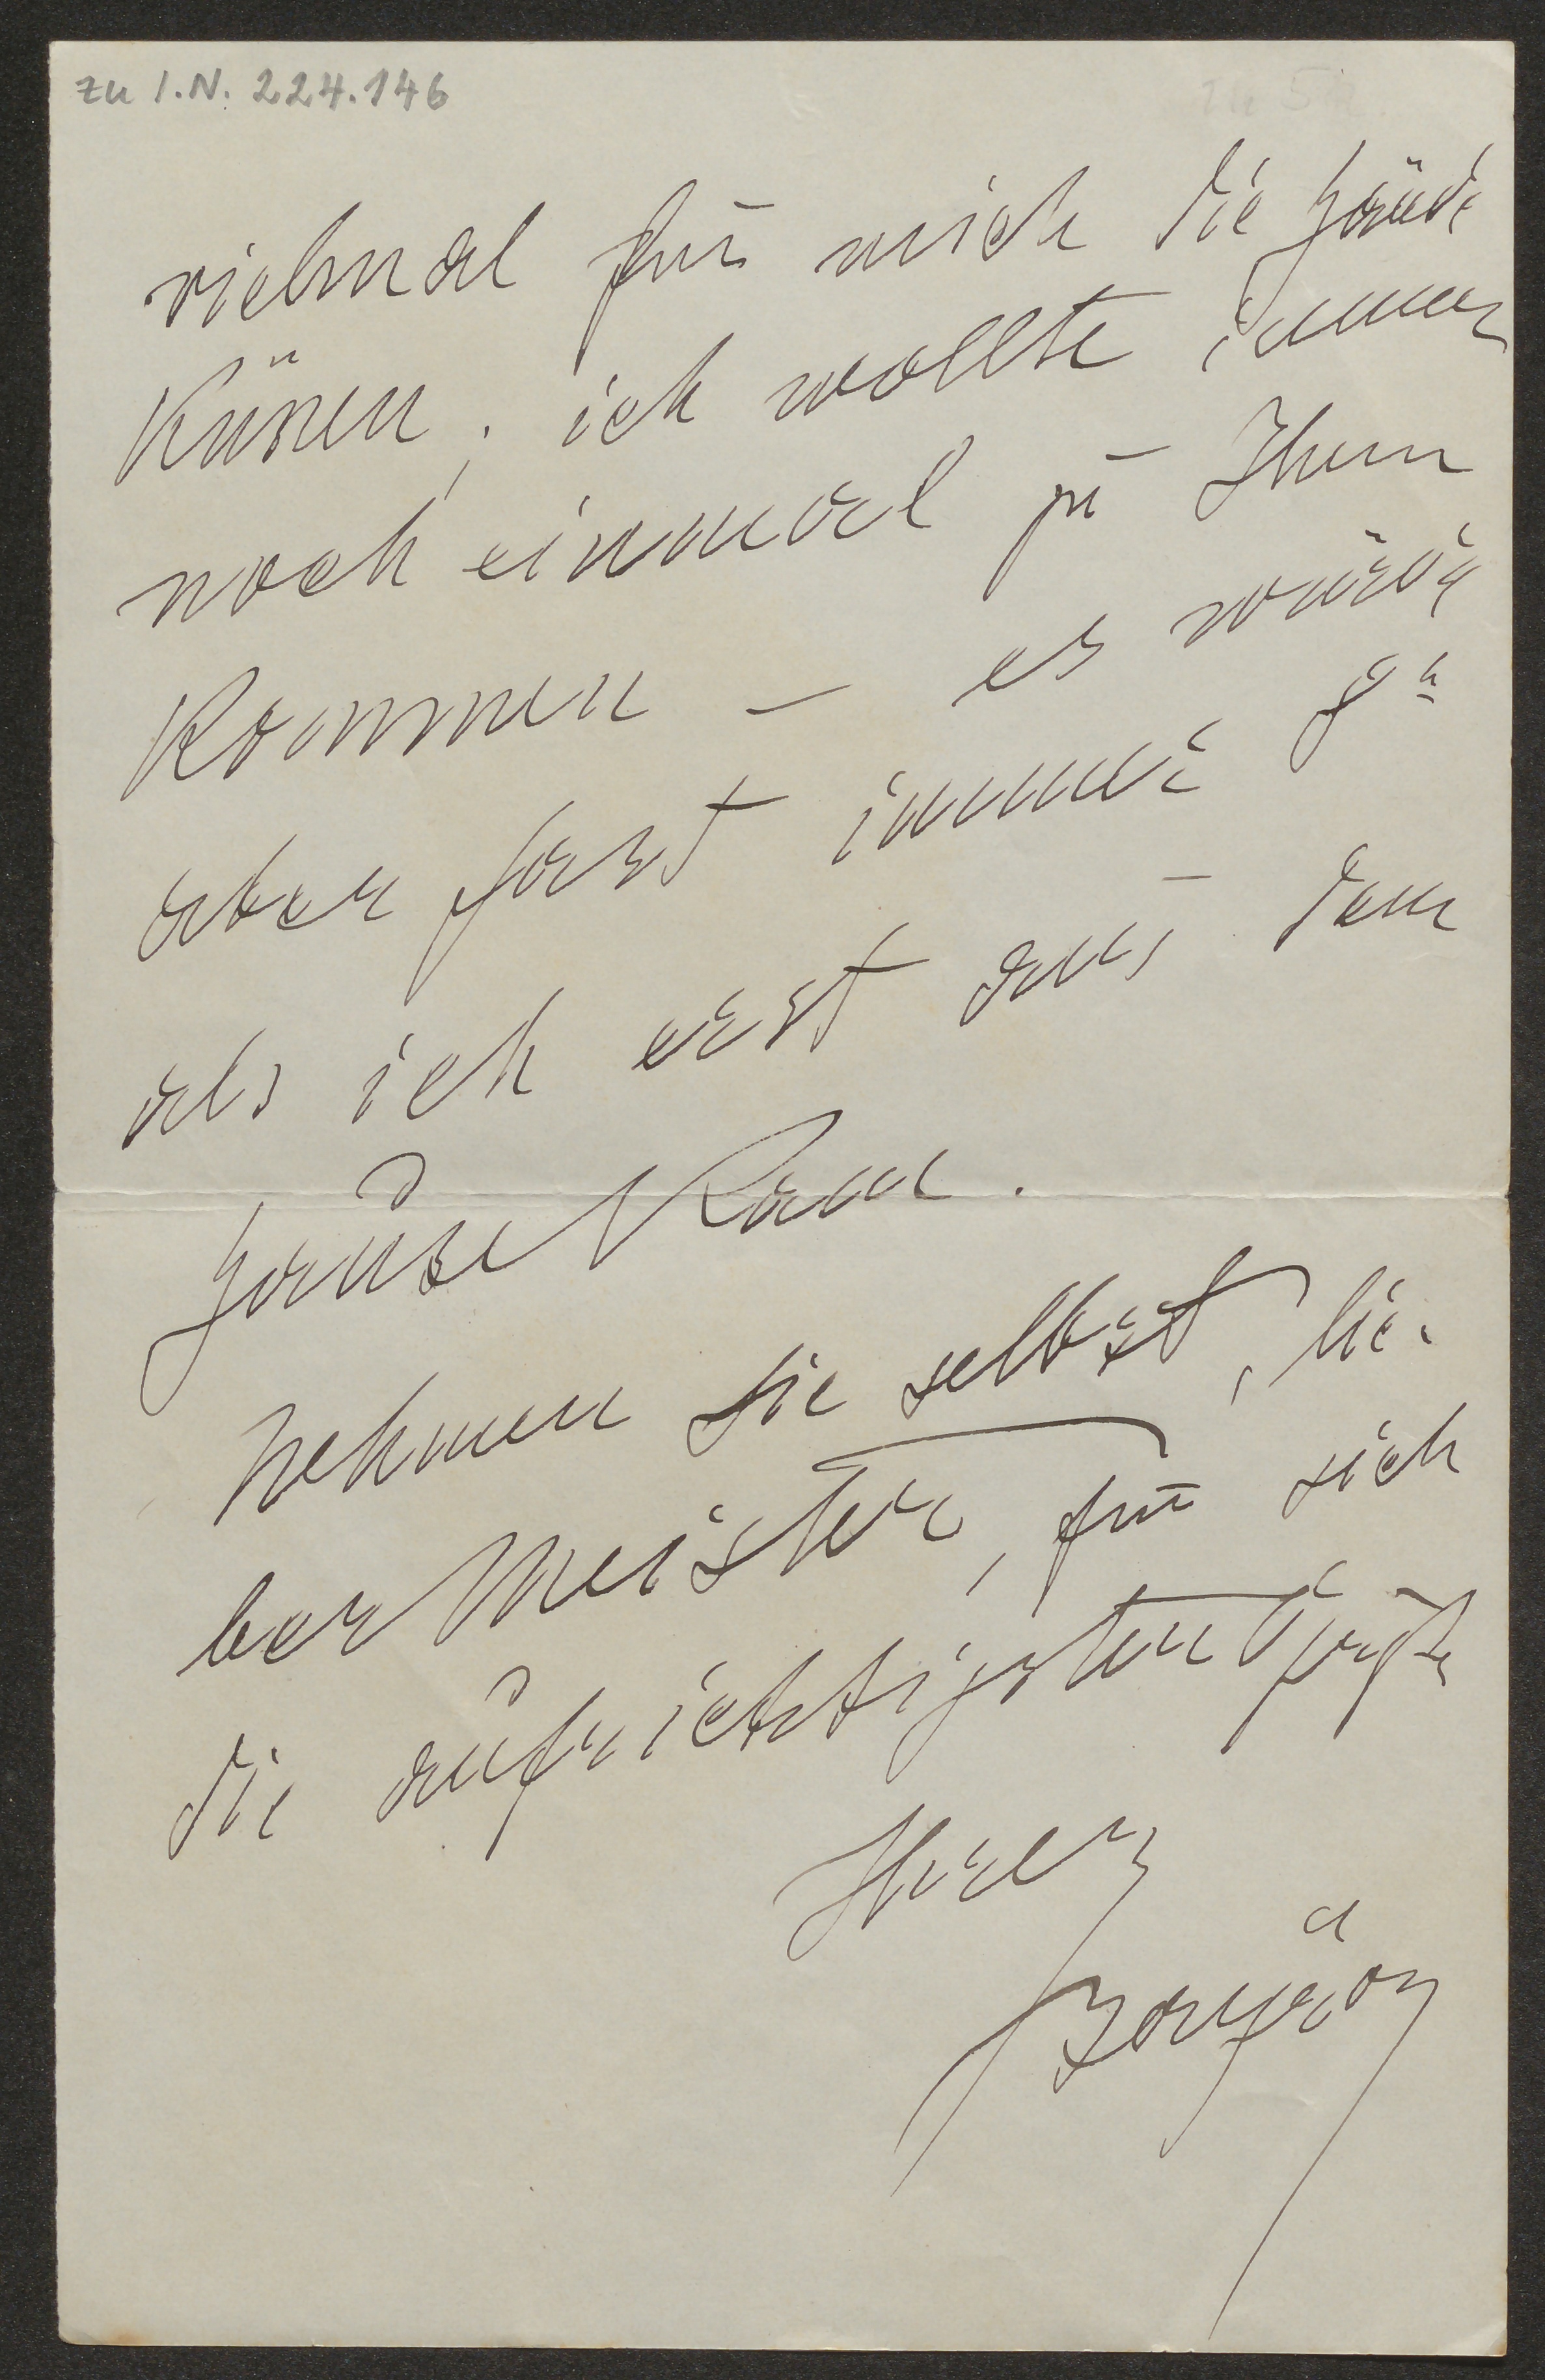 zu I.N. 224.146
vielmal für mich die Hände
Küssen; ich wollte immer
noch einmal zu Ihnen
Kommen – es
aber fast immer
als ich erst aus dem
Hause Kam.
Nehmen Sie selbst, lie-
ber Meister, für sich
die aufrichtigsten Grüße
Ihres